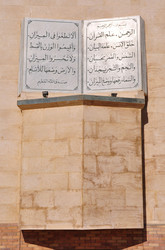 الرَّحْمٰنُ، عَلَّمَ الْقُرْآنَ
خَلَقَ الْإِنْسَانَ، عَلَّمَهُ الْبَيَانَ
الشَّمْسُ وَالْقَمَرُ بِحُسْبَانٍ
وَالنَّجْمُ وَالشَّجَرُ يَسْجُدَانِ
وَالسَّمَاءَ رَفَعَهَا وَوَضَعَ الْمِيزَانَ
أَلَّا تَطْغَوْا فِي الْمِيزَانِ
وَأَقِيمُوا الْوَزْنَ بِالْقِسْطِ
وَلَا تُخْسِرُوا الْمِيزَانَ
وَالْأَرْضَ وَضَعَهَا لِلْأَنَامِ
صدق الله العظيم